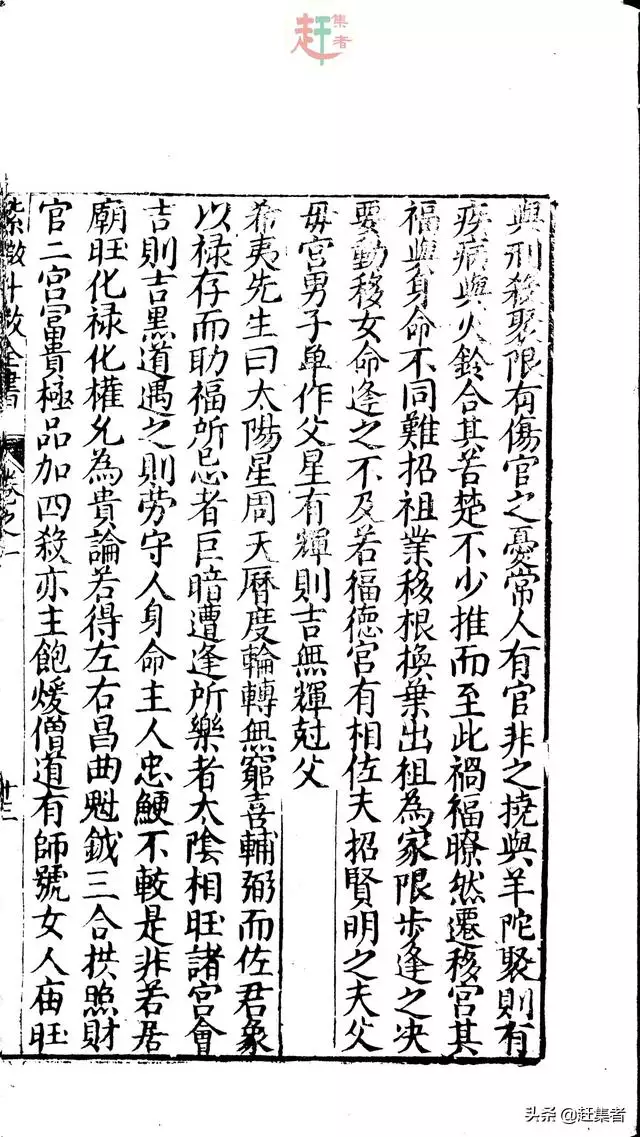 赶集者
與刑殺聚限有傷官之憂常人有官非之撓與羊陀聚則有
疾病與火鈴合其苦楚不少推而至此禍福瞭然遷移宮其
福與身命不同難招祖業移根換葉出祖為家限步逢之决
要動移女命逢之不及若福德宮有相佐夫招賢明之夫父
毋宮男子单作父星有輝則吉無輝尅父
希夷先生曰太陽星周天曆度輪轉無窮喜輔弼而佐君象
以禄存而助福所忌者巨暗遭逢所樂者太陰相旺諸宮會
吉則吉黑道遇之則劳守人身命主人忠鯁不較是非若居
廟旺化禄化權允為貴論若得左右昌曲魁鉞三合拱照財
官二宮富貴極品加四殺亦主飽煖僧道有師號女人庙旺
紫微斗数全書 卷之一 十二
头条 @赶集者